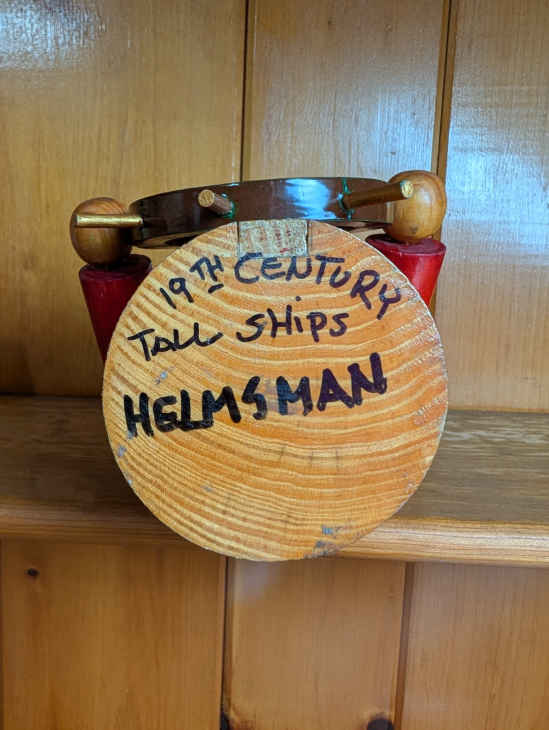 19TH CENTURY
TALL SHiPS
HELMSMAN